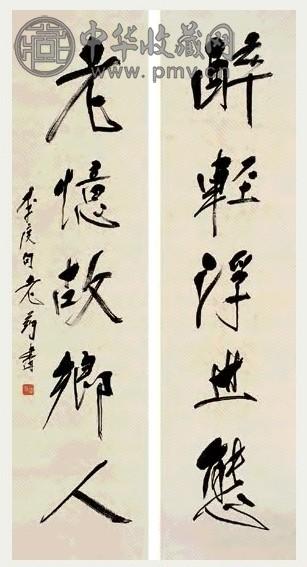 中华收藏网
www.pmv.cn
醉輕浮世態
老憶故鄉人
句老書